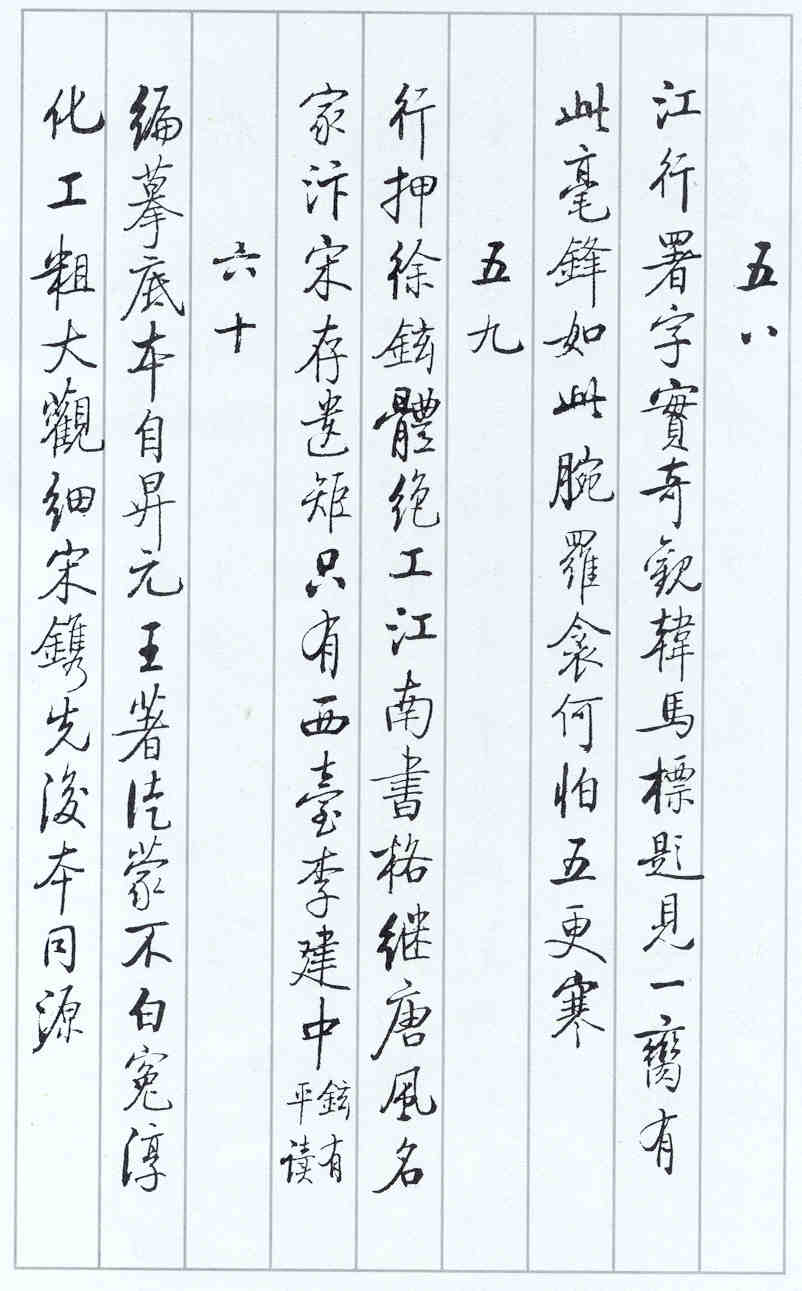 五八
江行署字實奇觀韓馬標題見一臠有
此毫鋒如此腕羅衾何怕五更寒
五九
行押徐鉉體絕工江南書格继唐風名
家汴宋存遺矩只有西臺李建中鉉有
平读
六十
編摹底本自昇元王著徒蒙不白冤淳
化工粗大觀细宋鐫先後本同源